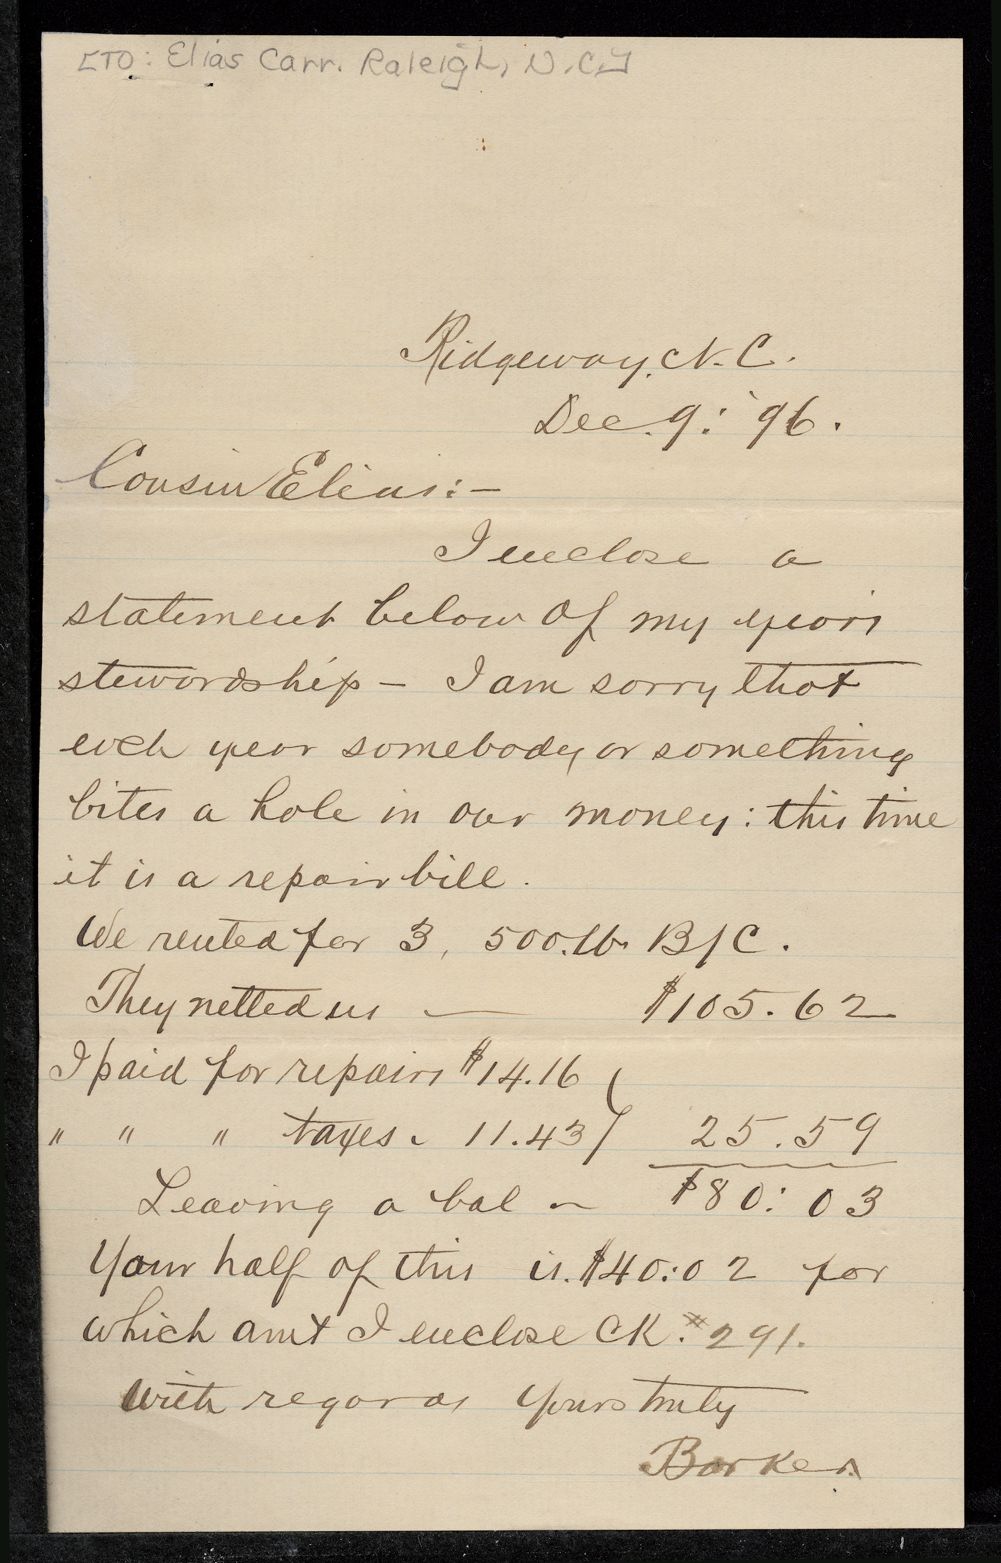 [TO: Elias Carr. Raleigh, N.C.]
Ridgeway, N. C.
Dec. 9: '96.
Cousin Elias:—
I enclose a
statement below of my year's
stewardship — I am sorry that
each year somebody or something
bites a hole in our money: this time
it is a repair bill.
We rented for 3, 500.lb. B/C.
They netted us — $105.62
I paid for repairs $14.16
" " " taxes - 11.43 25.59
Leaving a bal — $80:03
Your half of this is. $40:02 for
which amt I enclose CK. #291.
With regards Yours truly
Barker